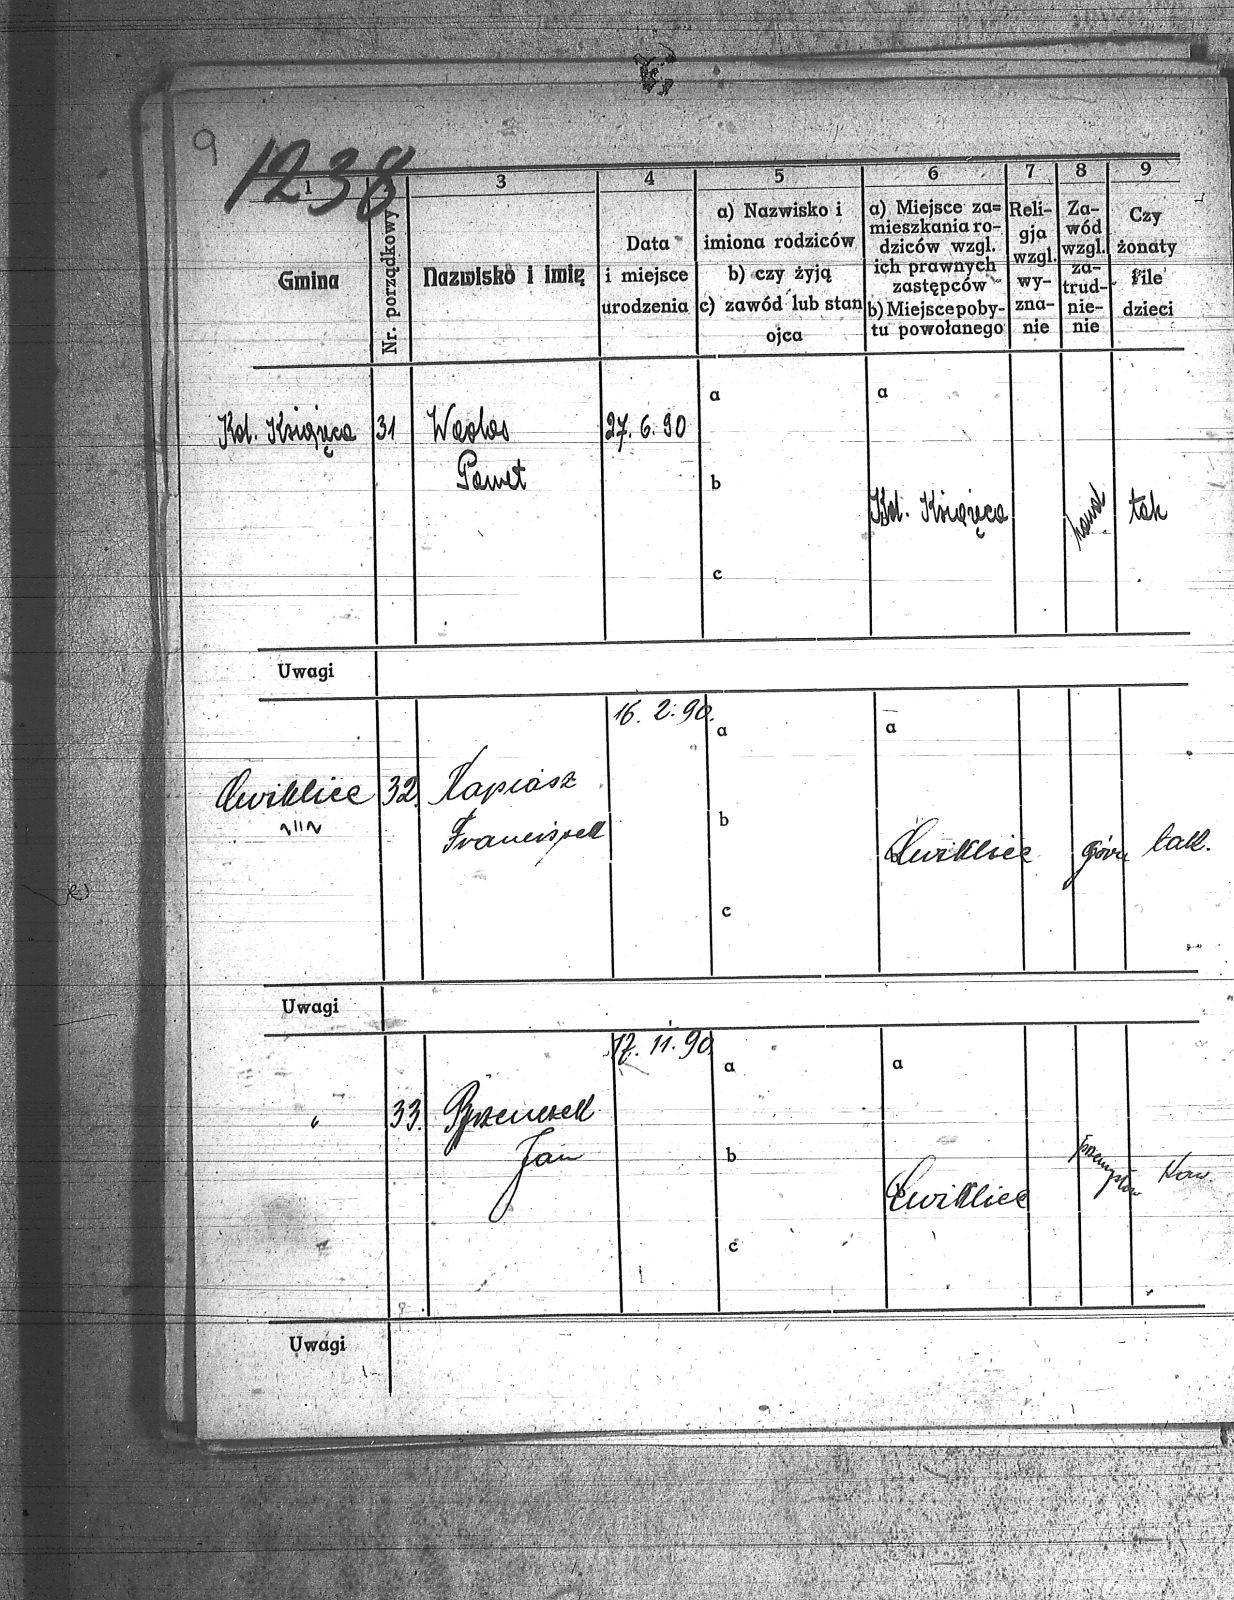 9
1238
1
3
4
5
6
7
8
9
Gmina
Nr. porządkowy
Nazwisko i imię
Data
i miejsce
urodzenia
a) Nazwisko i
imiona rodziców
b) czy żyją
c) zawód lub stan
ojca
a) Miejsce za=
mieszkania ro-
dziców wzgl.
ich prawnych
zastępców
b) Miejsce poby-
tu powołanego
Reli-
gja
wzgl.
wy-
zna-
nie
Za-
wód
wzgl.
za-
trud-
nie-
nie
Czy
żonaty
i ile
dzieci
Kol. Książęca 31 27. 6. 90
Paweł
a a
b
Kol. Książęca tak
c
Uwagi
16. 2. 90.
a a
Cwiklice 32. Kapiasz
Franciszek
b
Cwiklice tak.
c
Uwagi
17. 11. 90
a a
" 33.
Jan
b
Cwiklice
c
Uwagi